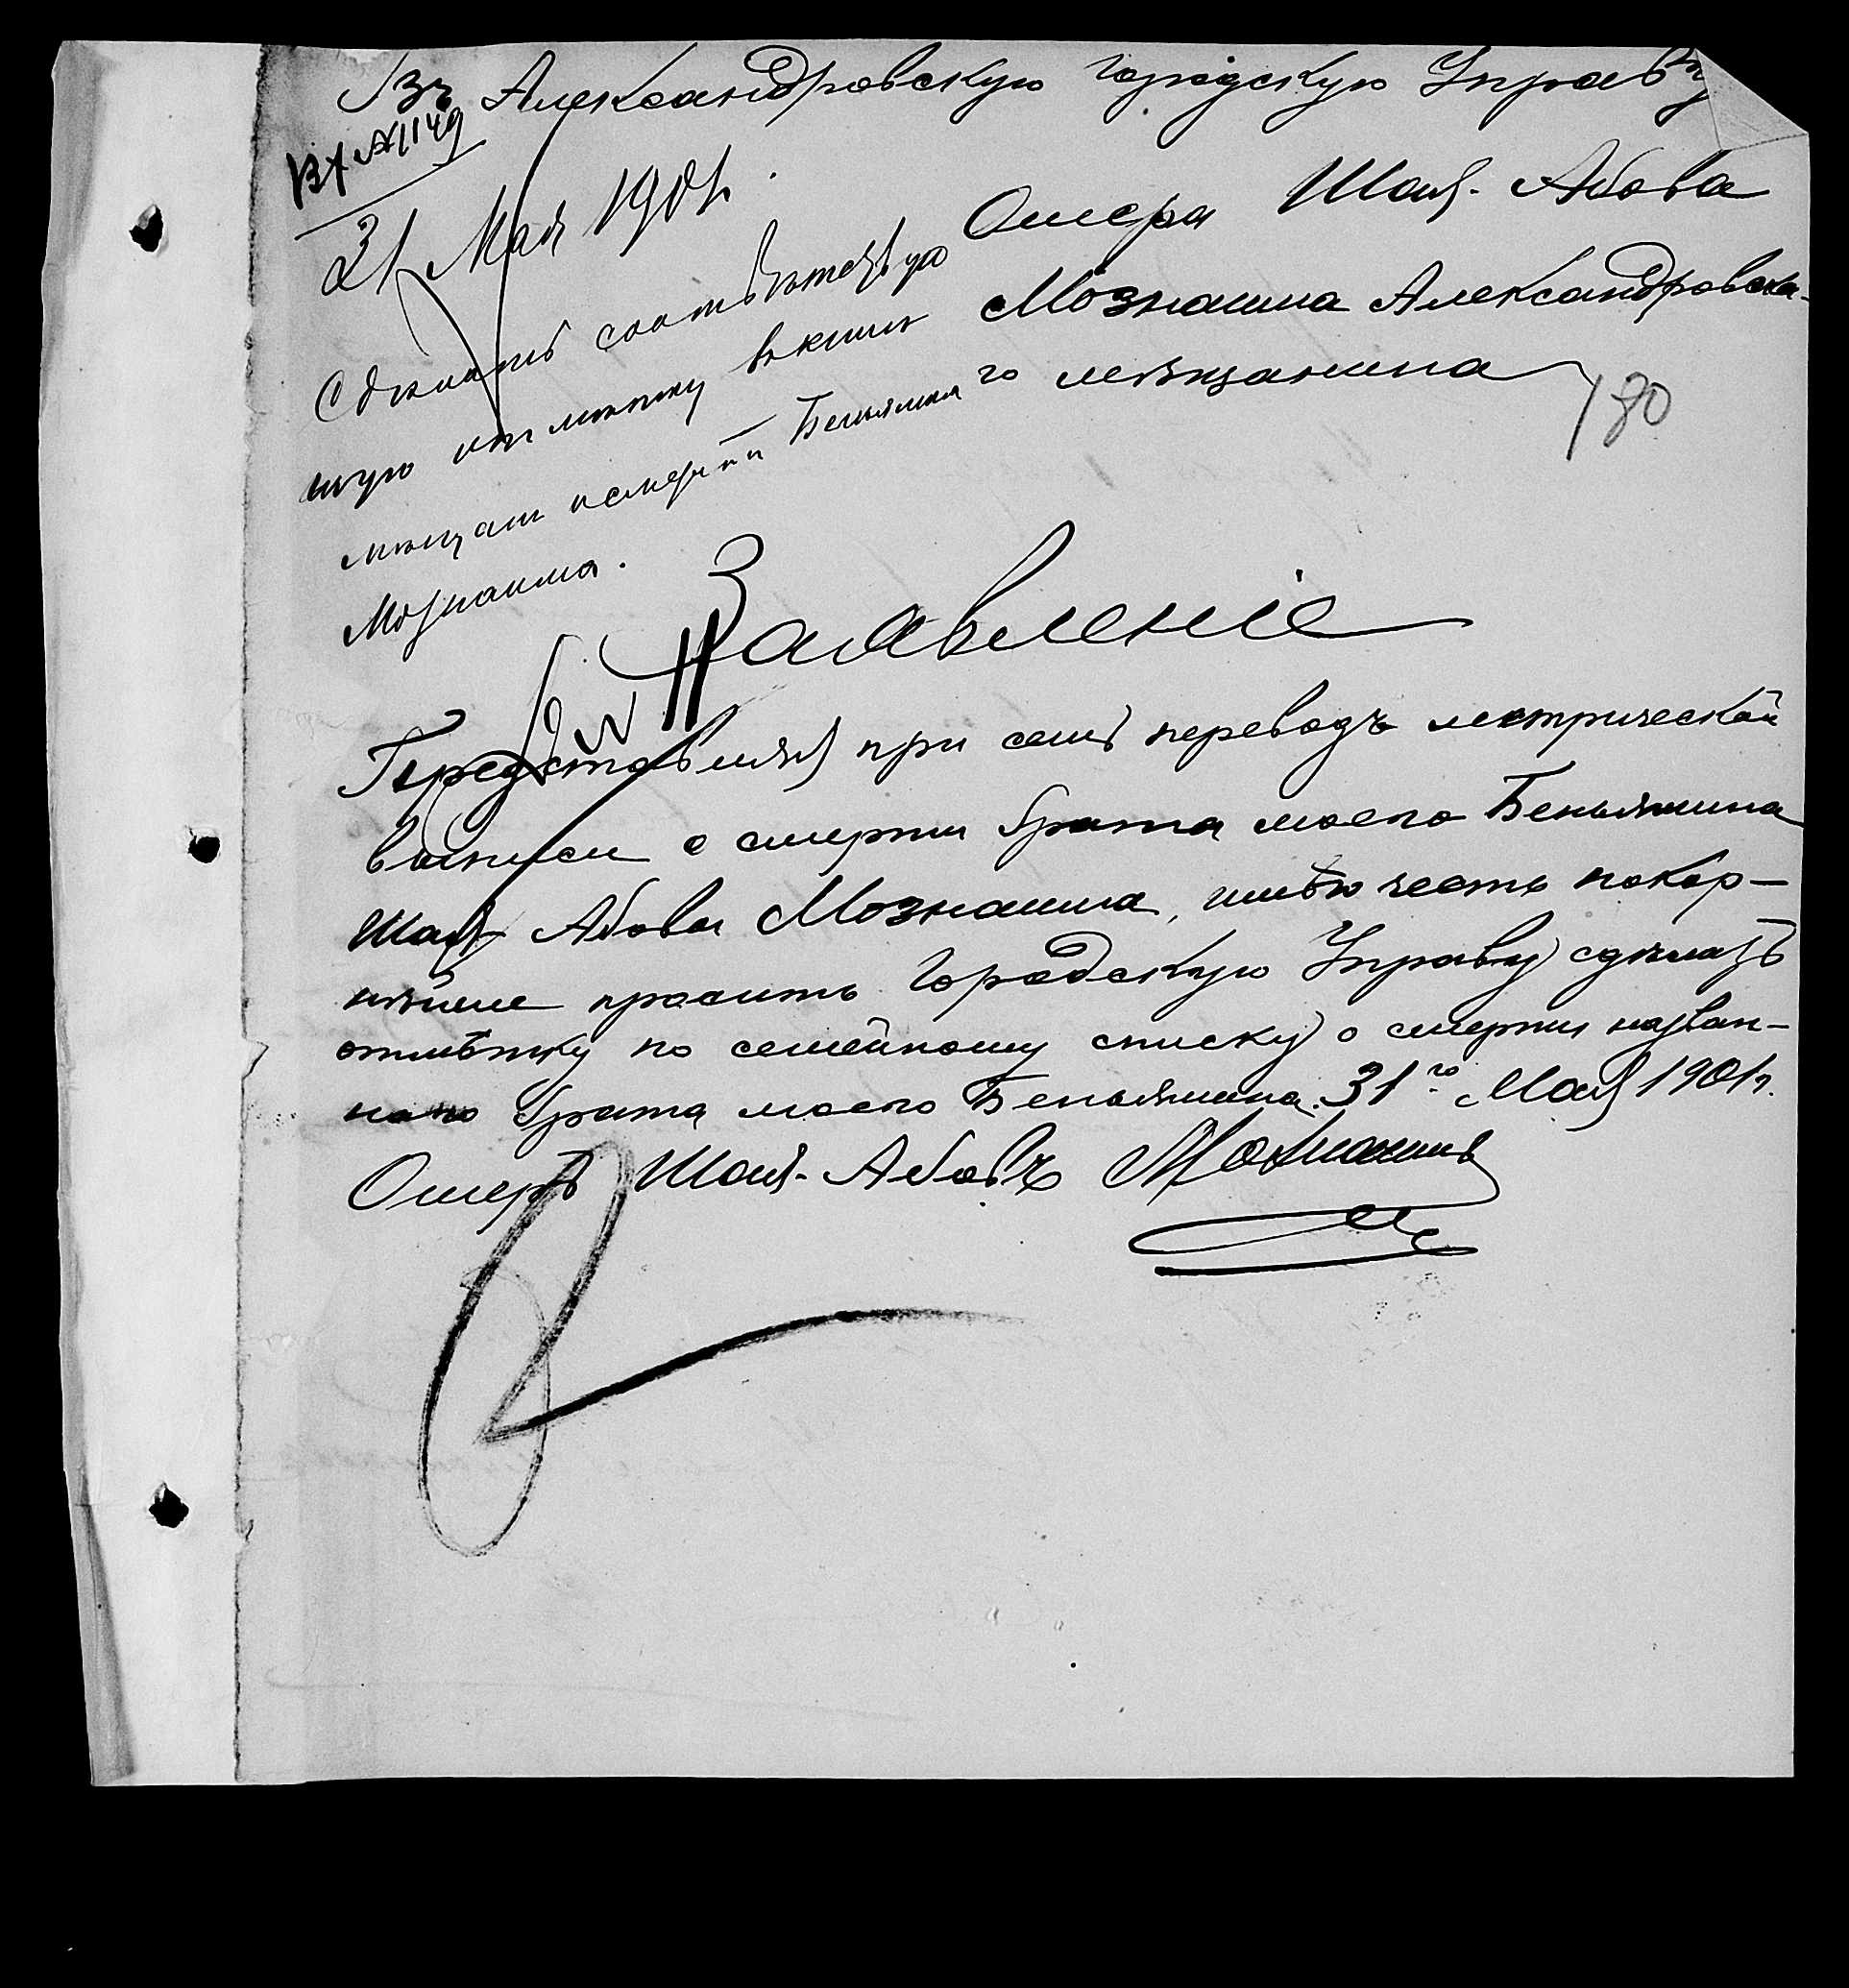 Въ Александровскую Городскую Управу
Вх. № 1149
31 Мая 1901 г.
Ошера Шая-Абова
Мознаима Александровска-
го мѣщанина
180
Сдѣлать соотвѣтствую
щую отмѣтку въ книгѣ
мѣщанъ о смерти Беньямина
Мознаима.
Заявленіе
Представляя при семъ переводъ метрической
выписи о смерти брата моего Беньямина
Шая-Абова Мознаима, имѣю честь покор-
нѣйше просить Городскую Управу сдѣлать
отмѣтку по семейному списку о смерти назван-
наго брата моего Беньямина. 31го Мая 1901 г.
Ошеръ Шая-Абовъ Мознаимъ